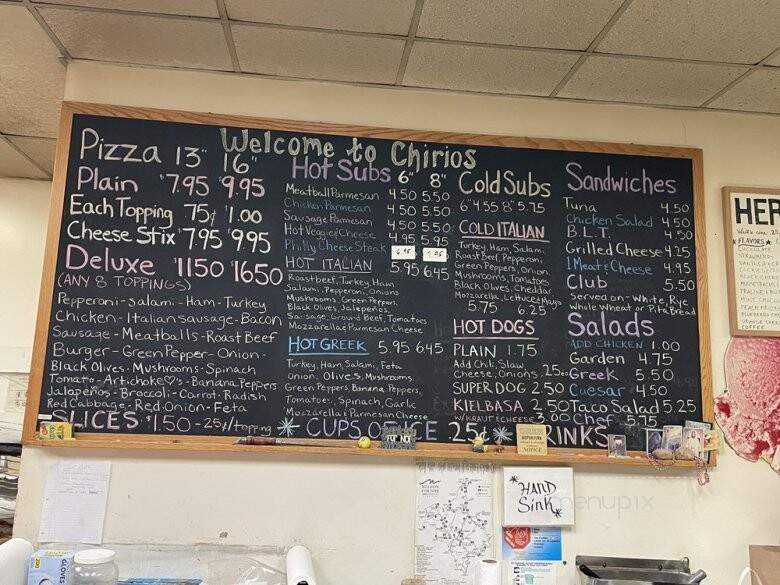 Welcome to Chirios
Pizza 13" 16"
Plain $7.95 $9.95
Each Topping 75¢ $1.00
Cheese Stix $7.95 9.95
Deluxe $1150 $1650
(ANY 8 TOPPINGS)
Pepperoni - Salami - Ham - Turkey
Chicken - Italian sausage - Bacon
Sausage - Meatballs - Roast Beef
Burger - Green Pepper - Onion -
Black Olives - Mushrooms - Spinach
Tomato - Artichoke♡s - Banana Peppers
Jalapeños - Broccoli - Carrot - Radish
Red Cabbage - Red Onion - Feta
SLICES $1.50 - 25¢/topping
Hot Subs 6" 8"
Meatball Parmesan 4.50 5.50
Chicken Parmesan 4.50 5.50
Sausage Parmesan 4.50 5.50
Hot Veggie & Cheese 4.95 5.95
Philly Cheese Steak
HOT ITALIAN 5.95 6.45
Roast beef, Turkey, Ham
Salami, Pepperoni, Onions
Mushrooms, Green Peppers,
Black Olives, Jalapeños,
Sausage, Ground Beef, Tomatoes
Mozzarella & Parmesan Cheese
HOT GREEK 5.95 6.45
Turkey, Ham, Salami, Feta
Onion, Olives, Mushrooms,
Green Peppers, Banana Peppers,
Tomatoes, Spinach, Garlic
Mozzarella & Parmesan Cheese
Cold Subs
6" 4.55 8" 5.75
COLD ITALIAN
Turkey, Ham, Salami
Roast Beef, Pepperoni
Green Peppers, Onion
Mushrooms, Tomatoes,
Black Olives, Cheddar
Mozzarella, Lettuce & Mayo
5.75 6.25
HOT DOGS
PLAIN 1.75
Add Chili, Slaw
Cheese, Onions, .25ea
SUPER DOG 2.50
KIELBASA 2.50
W/KRAUT & CHEESE 3.00
Sandwiches
Tuna 4.50
Chicken Salad 4.50
B.L.T. 4.50
Grilled Cheese 4.25
1 Meat & Cheese 4.95
Club 5.50
Served on - White, Rye
Whole Wheat or Pita Bread
Salads
ADD CHICKEN 1.00
Garden 4.75
Greek 5.50
Caesar 4.50
Taco Salad 5.25
Chef 5.75
CUPS OF ICE 25¢
RINKS
HER
FLAVORS
HAND
Sink
menupix